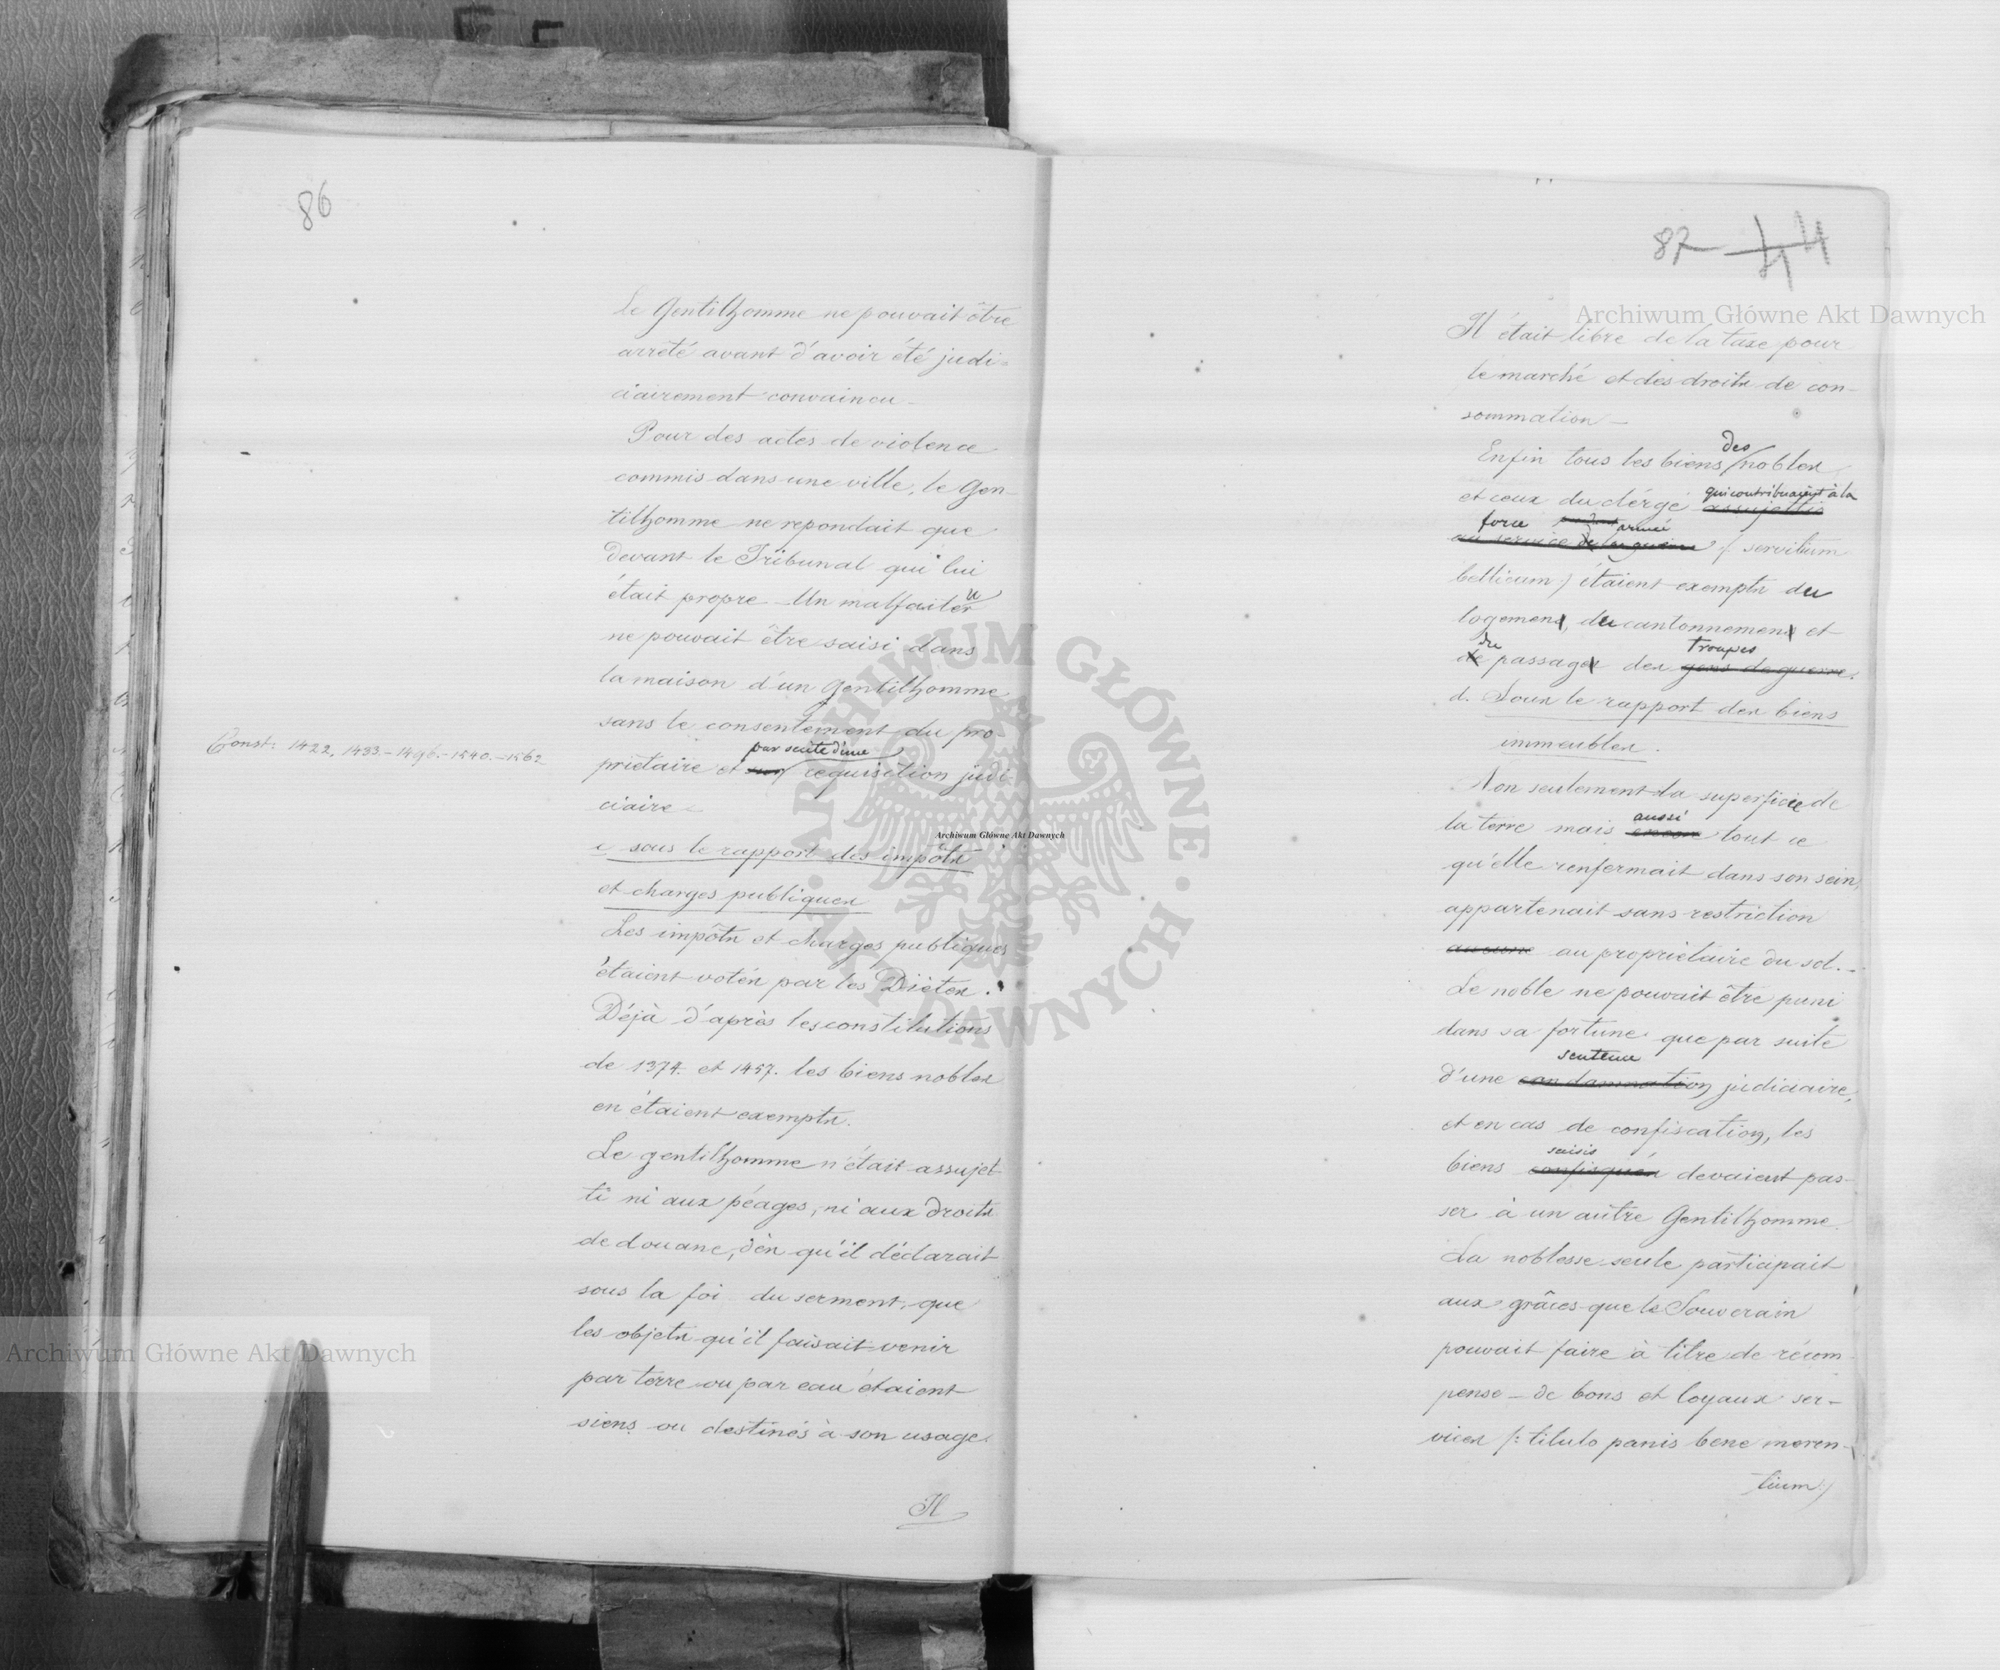 86
Le Gentilhomme ne pouvait être
arrêté avant d'avoir été judi=
ciairement convaincu.
Pour des actes de violence
commis dans une ville, le Gen-
tilhomme ne repondait que
devant le Tribunal qui lui
était propre – Un malfaiteur
ne pouvait être saisi dans
la maison d'un Gentilhomme
sans le consentement du pro
Const: 1422, 1433.–1496.–1540.–1562
par suite d'une
priétaire et sur requisition judi-
ciaire –
c sous le rapport des impôts
et charges publiques
Les impôts et charges publiques
étaient votés par les Diètes.
Déjà d'après les constitutions
de 1374. et 1457. les biens nobles
en étaient exempts.
Le gentilhomme n'était assujet
ti ni aux péages, ni aux droits
de douane, dès qu'il déclarait
sous la foi du serment, que
les objets qu'il faisait venir
par terre ou par eau étaient
siens ou destinés à son usage.
Il
87 44
Il était libre de la taxe pour
le marché et des droits de con-
sommation –
des
Enfin tous les biens nobles
qui contribuaient à la
et ceux du clérgé assujettis
force armée
au service de la guerre /: servitium
bellicum :/ étaient exempts du
logement, du cantonnement et
du troupes
de passage des gens de guerre.
d. Sous le rapport des biens
immeubles.
Non seulement la superficie de
aussi
la terre mais encore tout ce
qu'elle renfermait dans son sein,
appartenait sans restriction
aucune au propriétaire du sol. –
Le noble ne pouvait être puni
dans sa fortune que par suite
sentence
d'une condamnation judiciaire,
et en cas de confiscation, les
saisis
biens confisqués devaient pas-
ser à un autre Gentilhomme.
La noblesse seule participait
aux grâces que le Souverain
pouvait faire à titre de récom-
pense – de bons et loyaux ser-
vices /: titulo panis bene meren-
tium :/
Archiwum Główne Akt Dawnych
Archiwum Główne Akt Dawnych
Archiwum Główne Akt Dawnych
ARCHIWUM GŁÓWNE · AKT DAWNYCH ·